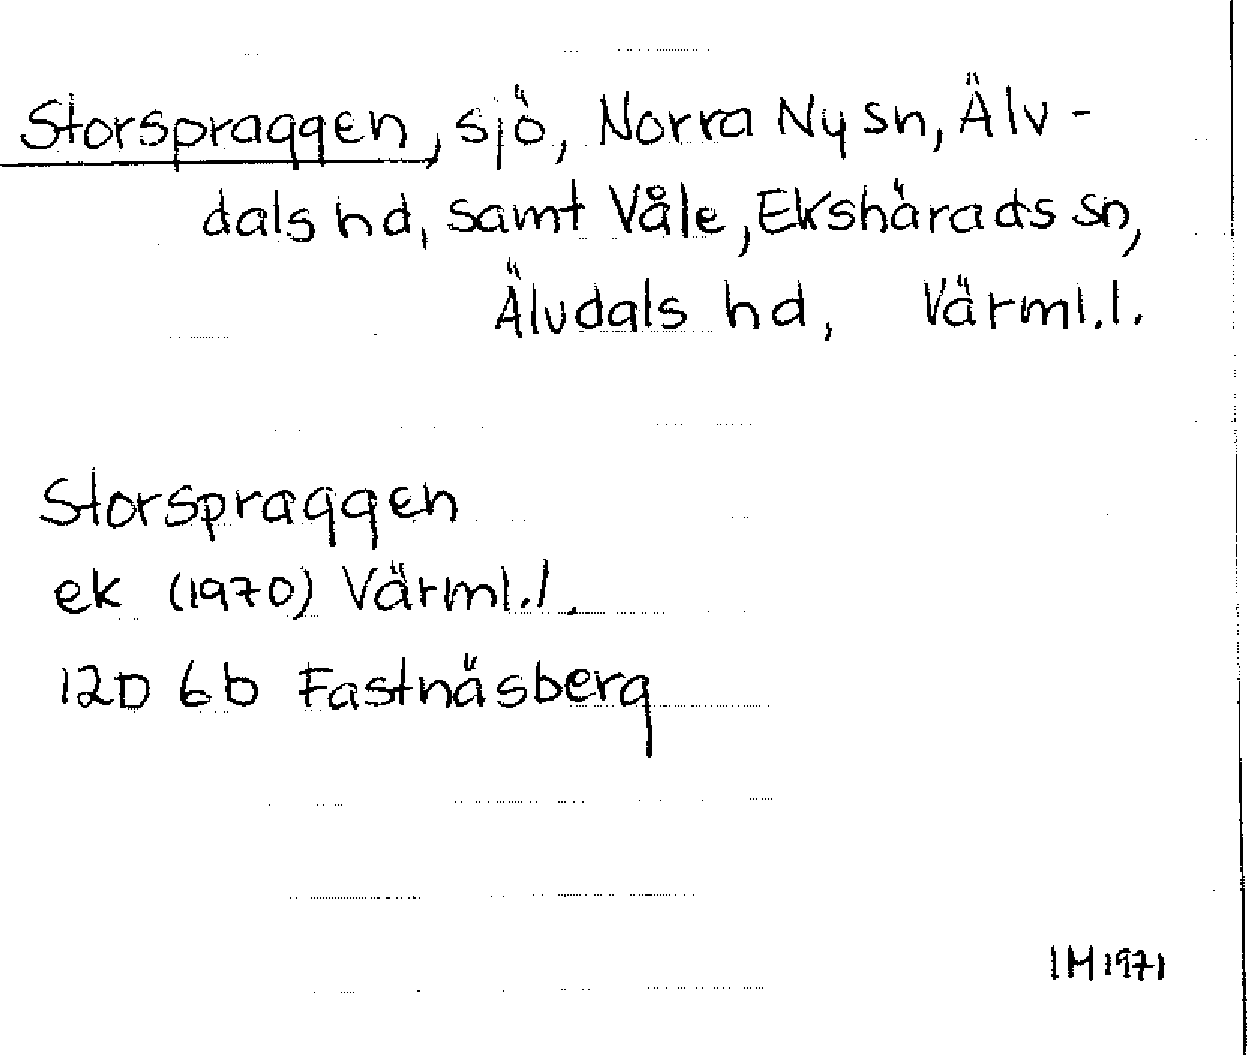 Storspraggen, sjö, Norra Ny sn, Älv-
dals hd, samt Våle, Ekshärads sn,
Älvdals hd, Värml.l.
Storspraggen
ek (1970) Värml.l.
12D 6b Fastnäsberg
IH 1971